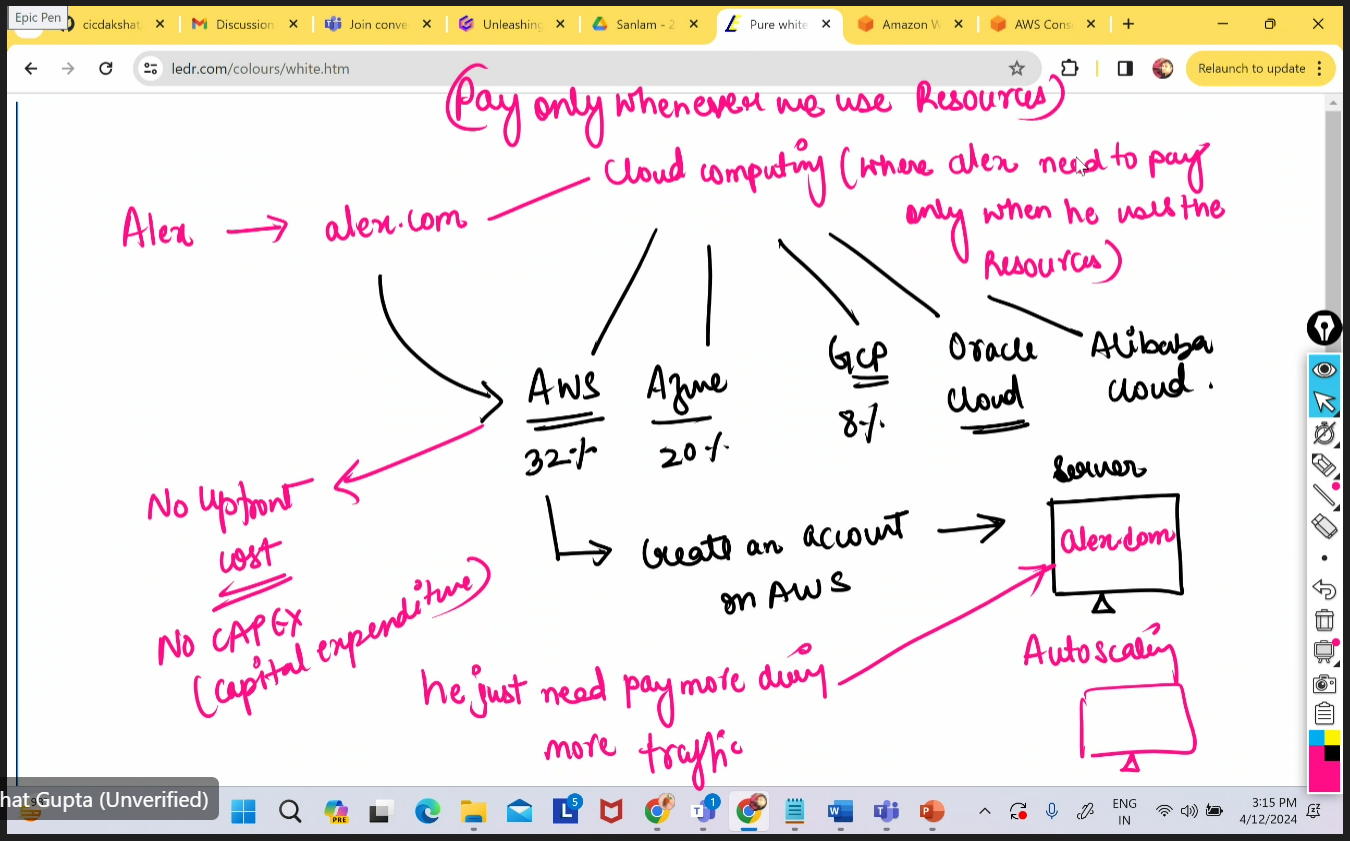 Epic Pen
cicdakshat
Discussion
Join conve
Unleashing
Sanlam - 2
Pure white
Amazon W
AWS Cons
ledr.com/colours/white.htm
Relaunch to update
(Pay only whenever we use Resources)
Cloud computing (where alex need to pay
only when he uses the
Resources)
Alex → alex.com
AWS
32%
Azure
20%
GCP
8%
Oracle
cloud
Alibaba
cloud.
No Upfront
cost
No CAPEX
(capital expenditure)
Create an account
on AWS
Server
alex.com
Autoscaling
he just need pay more during
more traffic
hat Gupta (Unverified)
PRE
5
1
ENG
IN
3:15 PM
4/12/2024